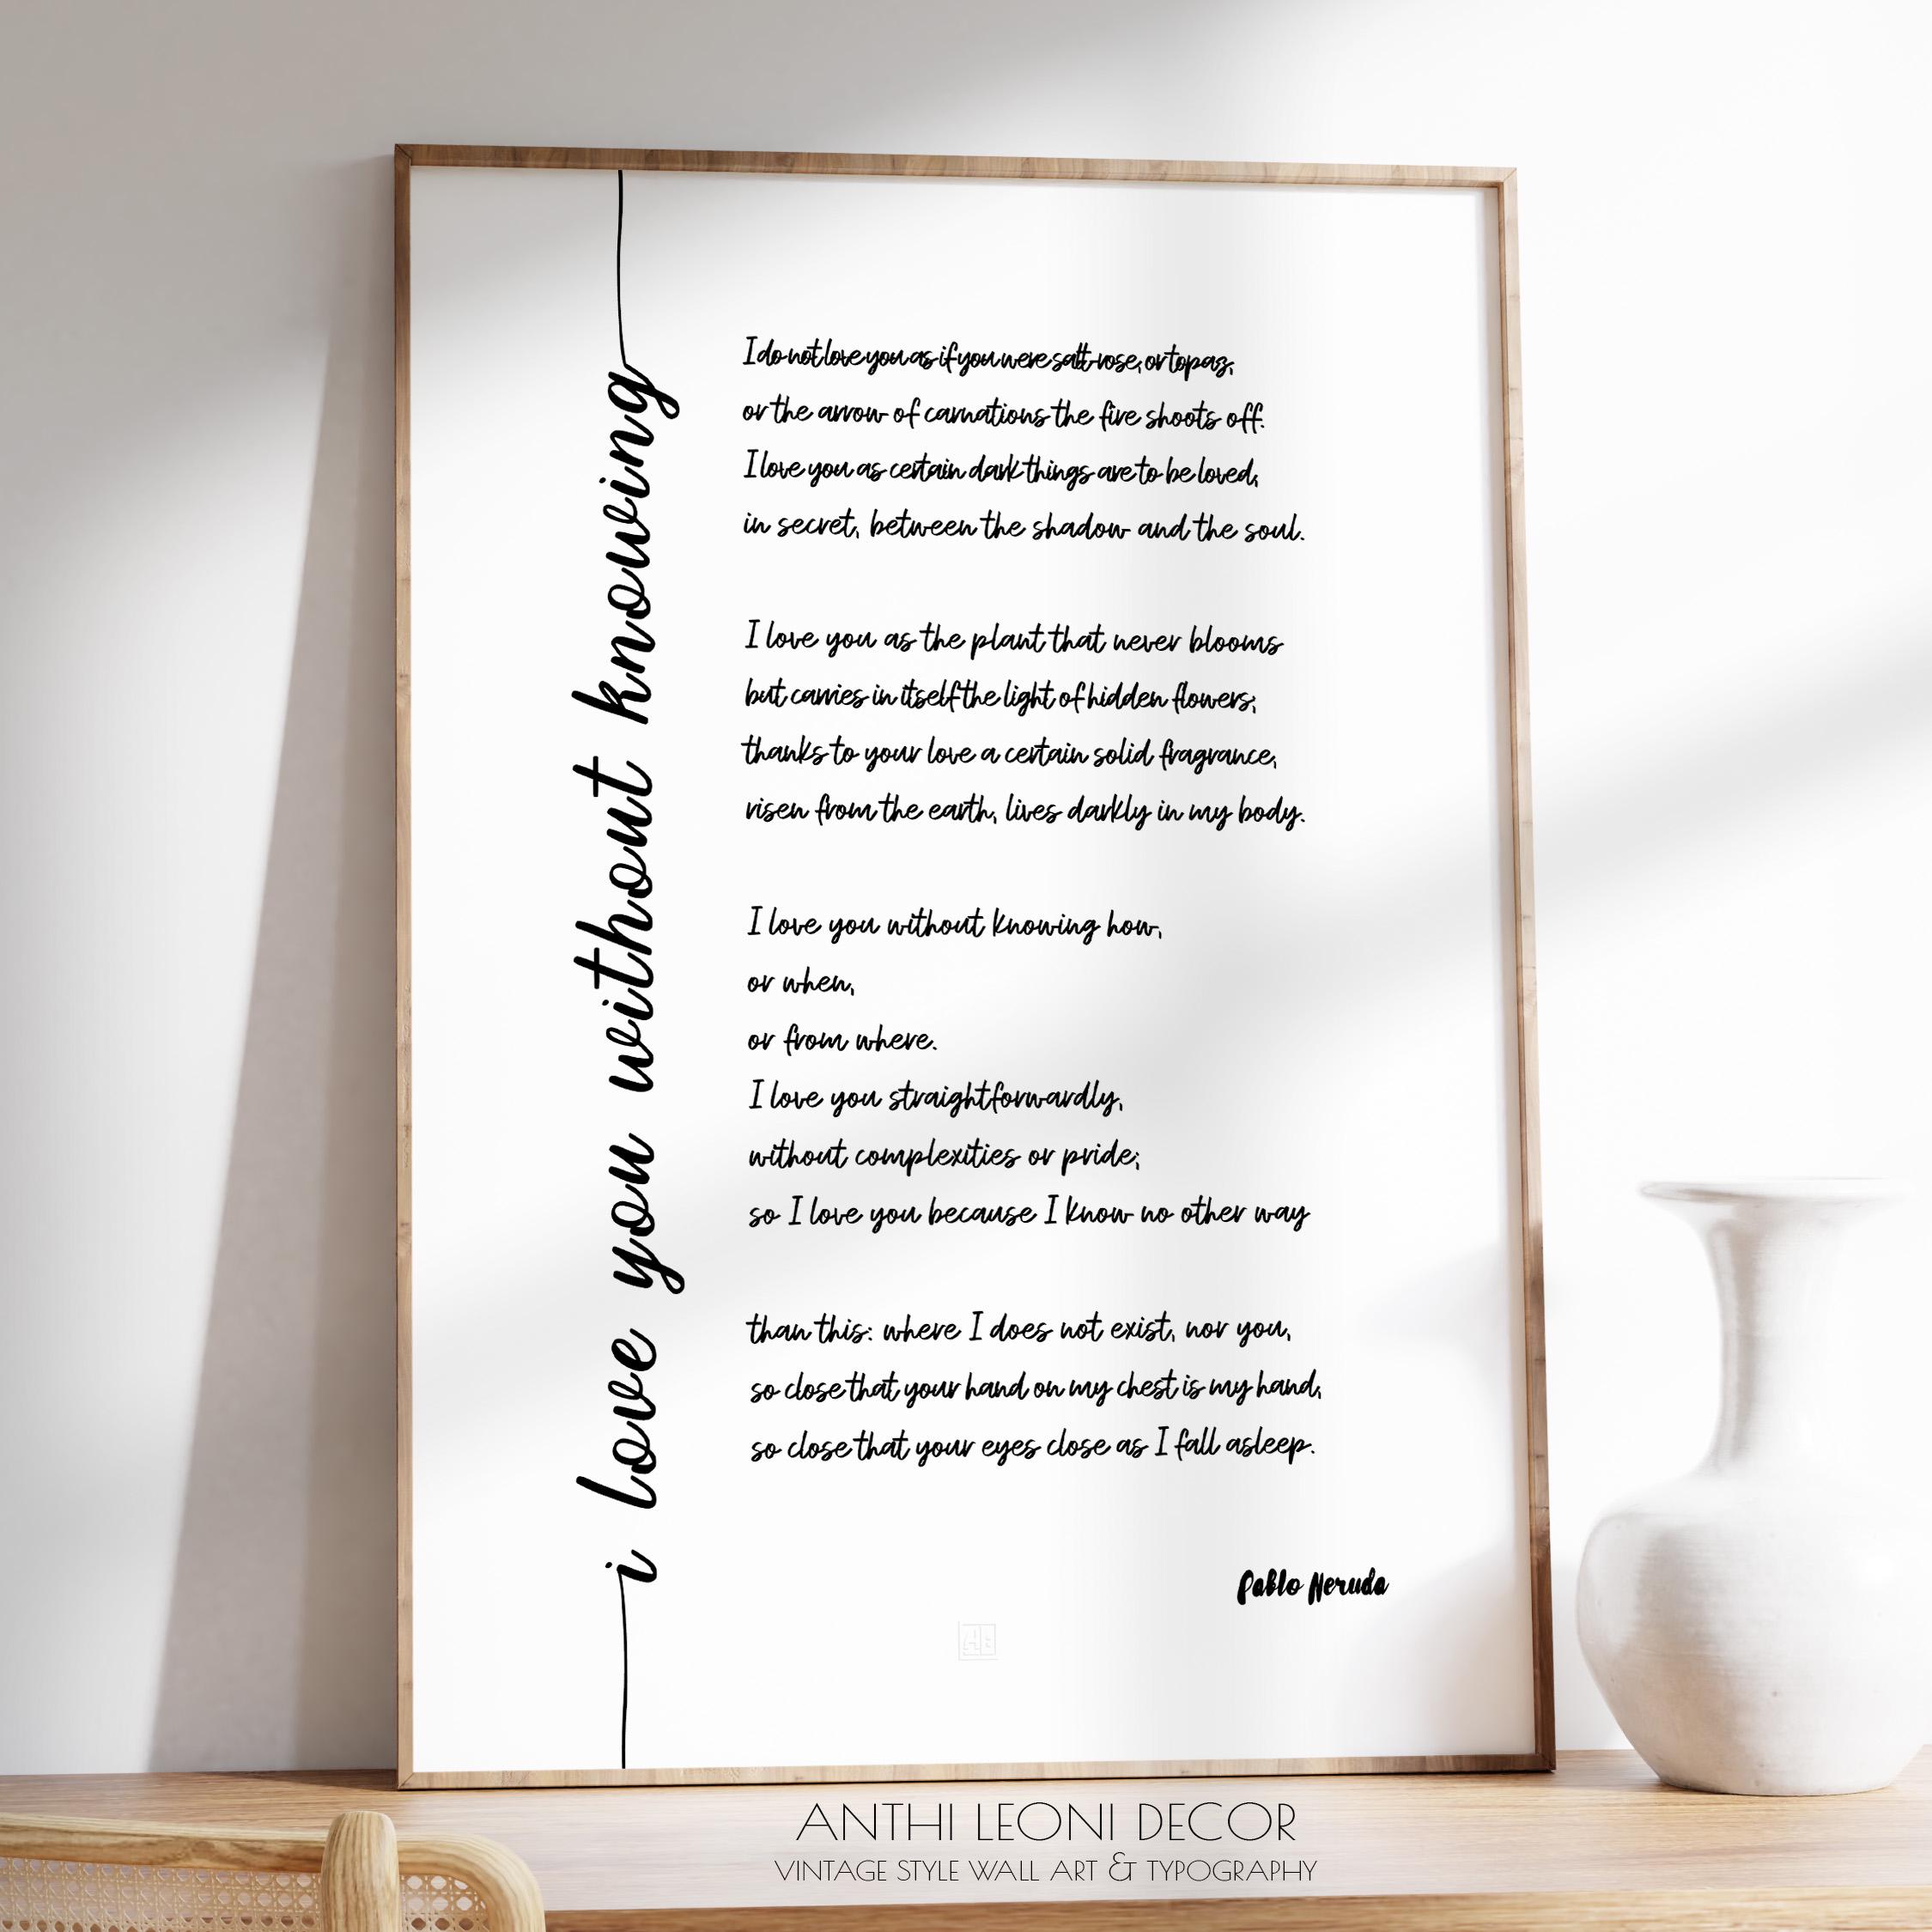 i love you without knowing
I do not love you as if you were salt-rose, or topaz,
or the arrow of carnations the fire shoots off.
I love you as certain dark things are to be loved,
in secret, between the shadow and the soul.
I love you as the plant that never blooms
but carries in itself the light of hidden flowers;
thanks to your love a certain solid fragrance,
risen from the earth, lives darkly in my body.
I love you without knowing how,
or when,
or from where.
I love you straightforwardly,
without complexities or pride;
so I love you because I know no other way
than this: where I does not exist, nor you,
so close that your hand on my chest is my hand,
so close that your eyes close as I fall asleep.
Pablo Neruda
ANTHI LEONI DECOR
VINTAGE STYLE WALL ART & TYPOGRAPHY